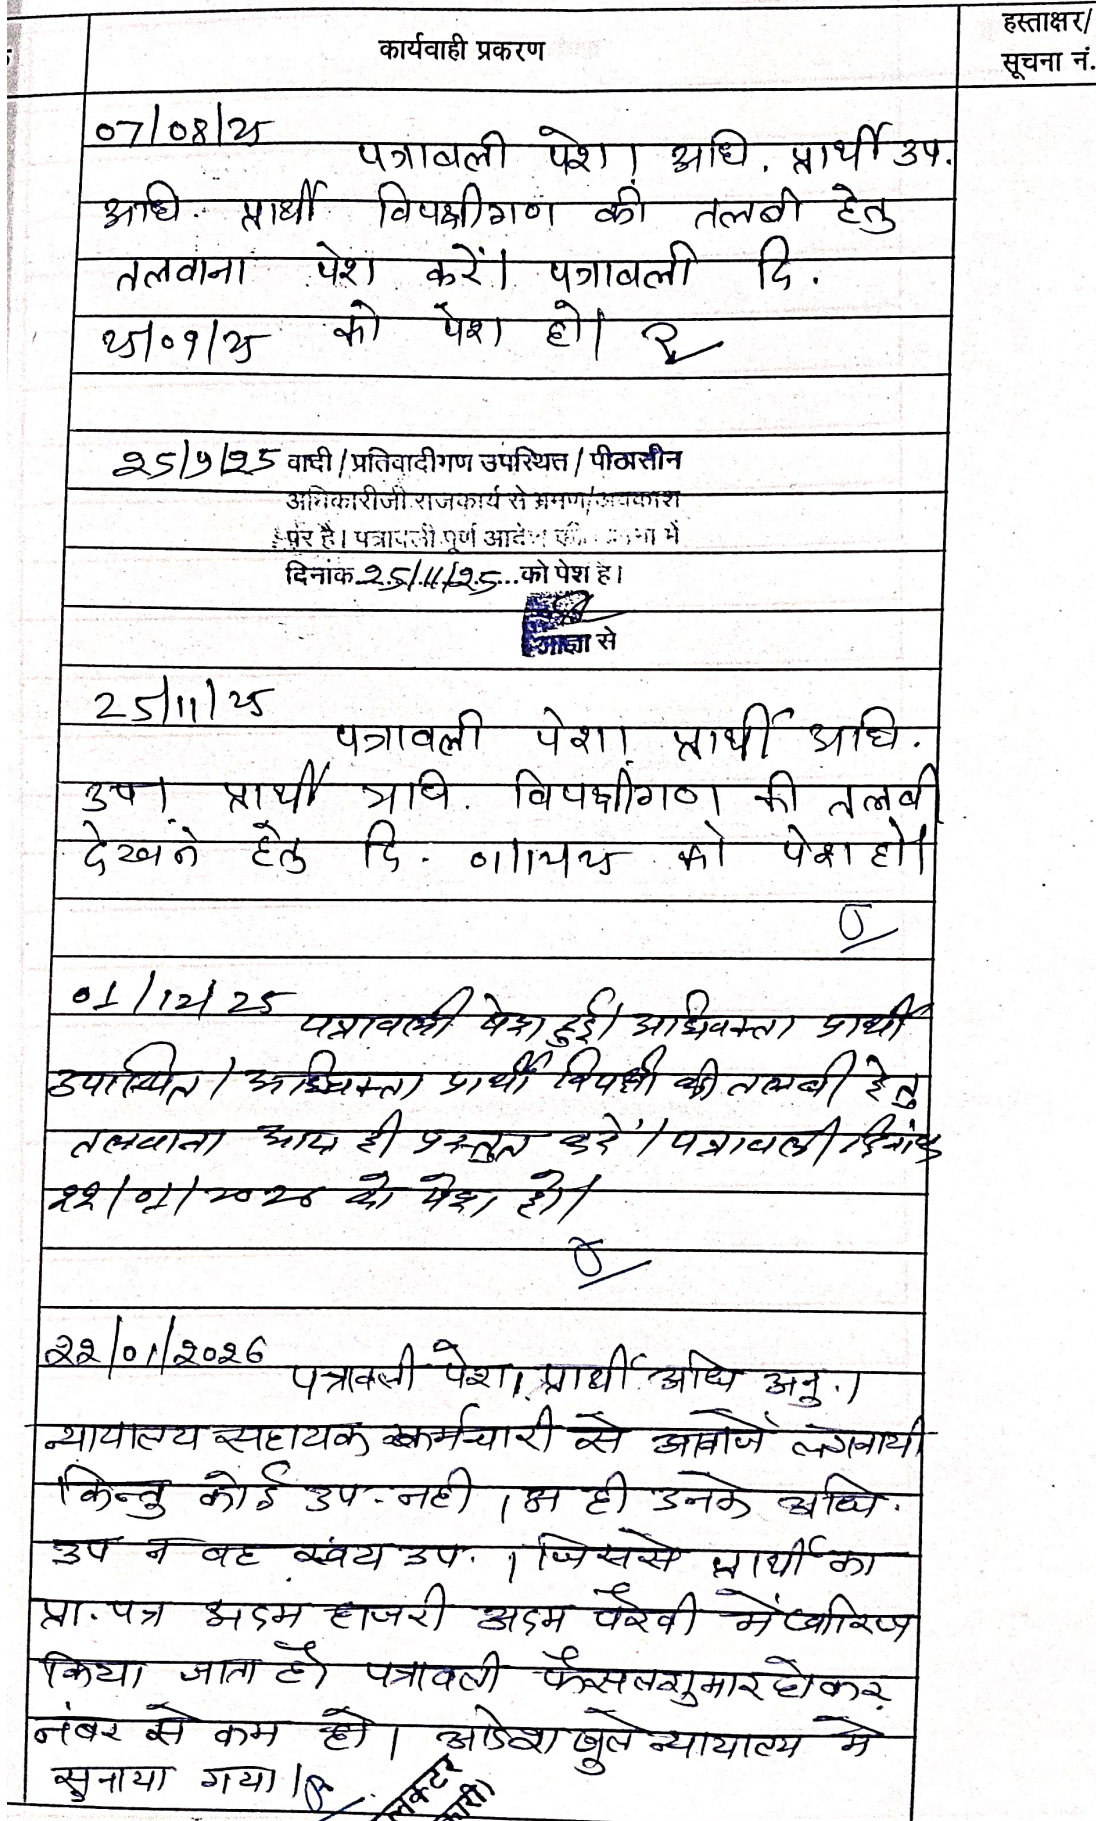 कार्यवाही प्रकरण
हस्ताक्षर/
सूचना नं.
07/08/25
पत्रावली पेश। अधि. प्रार्थी उप.
अधि. प्रार्थी विपक्षीगण की तलबी हेतु
तलवाना पेश करें। पत्रावली दि.
25/09/25 को पेश हो।
25/9/25 वादी/प्रतिवादीगण उपस्थित/पीठासीन
अधिकारीजी राजकार्य से भ्रमण/अवकाश
पर है। पत्रावली पूर्ण आदेश की में
दिनांक 25/11/25 को पेश है।
आज्ञा से
25/11/25
पत्रावली पेश। प्रार्थी अधि.
उप। प्रार्थी अधि. विपक्षीगण की तलबी
देखने हेतु दि. 01/12/25 को पेश हो।
01/12/25
पत्रावली पेश हुई। अधिवक्ता प्रार्थी
उपस्थित। अधिवक्ता प्रार्थी विपक्षी की तलबी हेतु
तलवाना आज ही प्रस्तुत करें। पत्रावली दिनांक
22/01/2026 को पेश हो।
22/01/2026
पत्रावली पेश। प्रार्थी अधि अनु.।
न्यायालय सहायक कर्मचारी से आवाजें लगवायी
किन्तु कोई उप. नही। न ही उनके अधि.
उप न वह स्वंय उप.। जिससे प्रार्थी का
प्रा. पत्र अदम हाजरी अदम पैरवी में खारिज
किया जाता है। पत्रावली फैसलशुमार होकर
नंबर से कम हो। आदेश खुले न्यायालय मे
सुनाया गया।